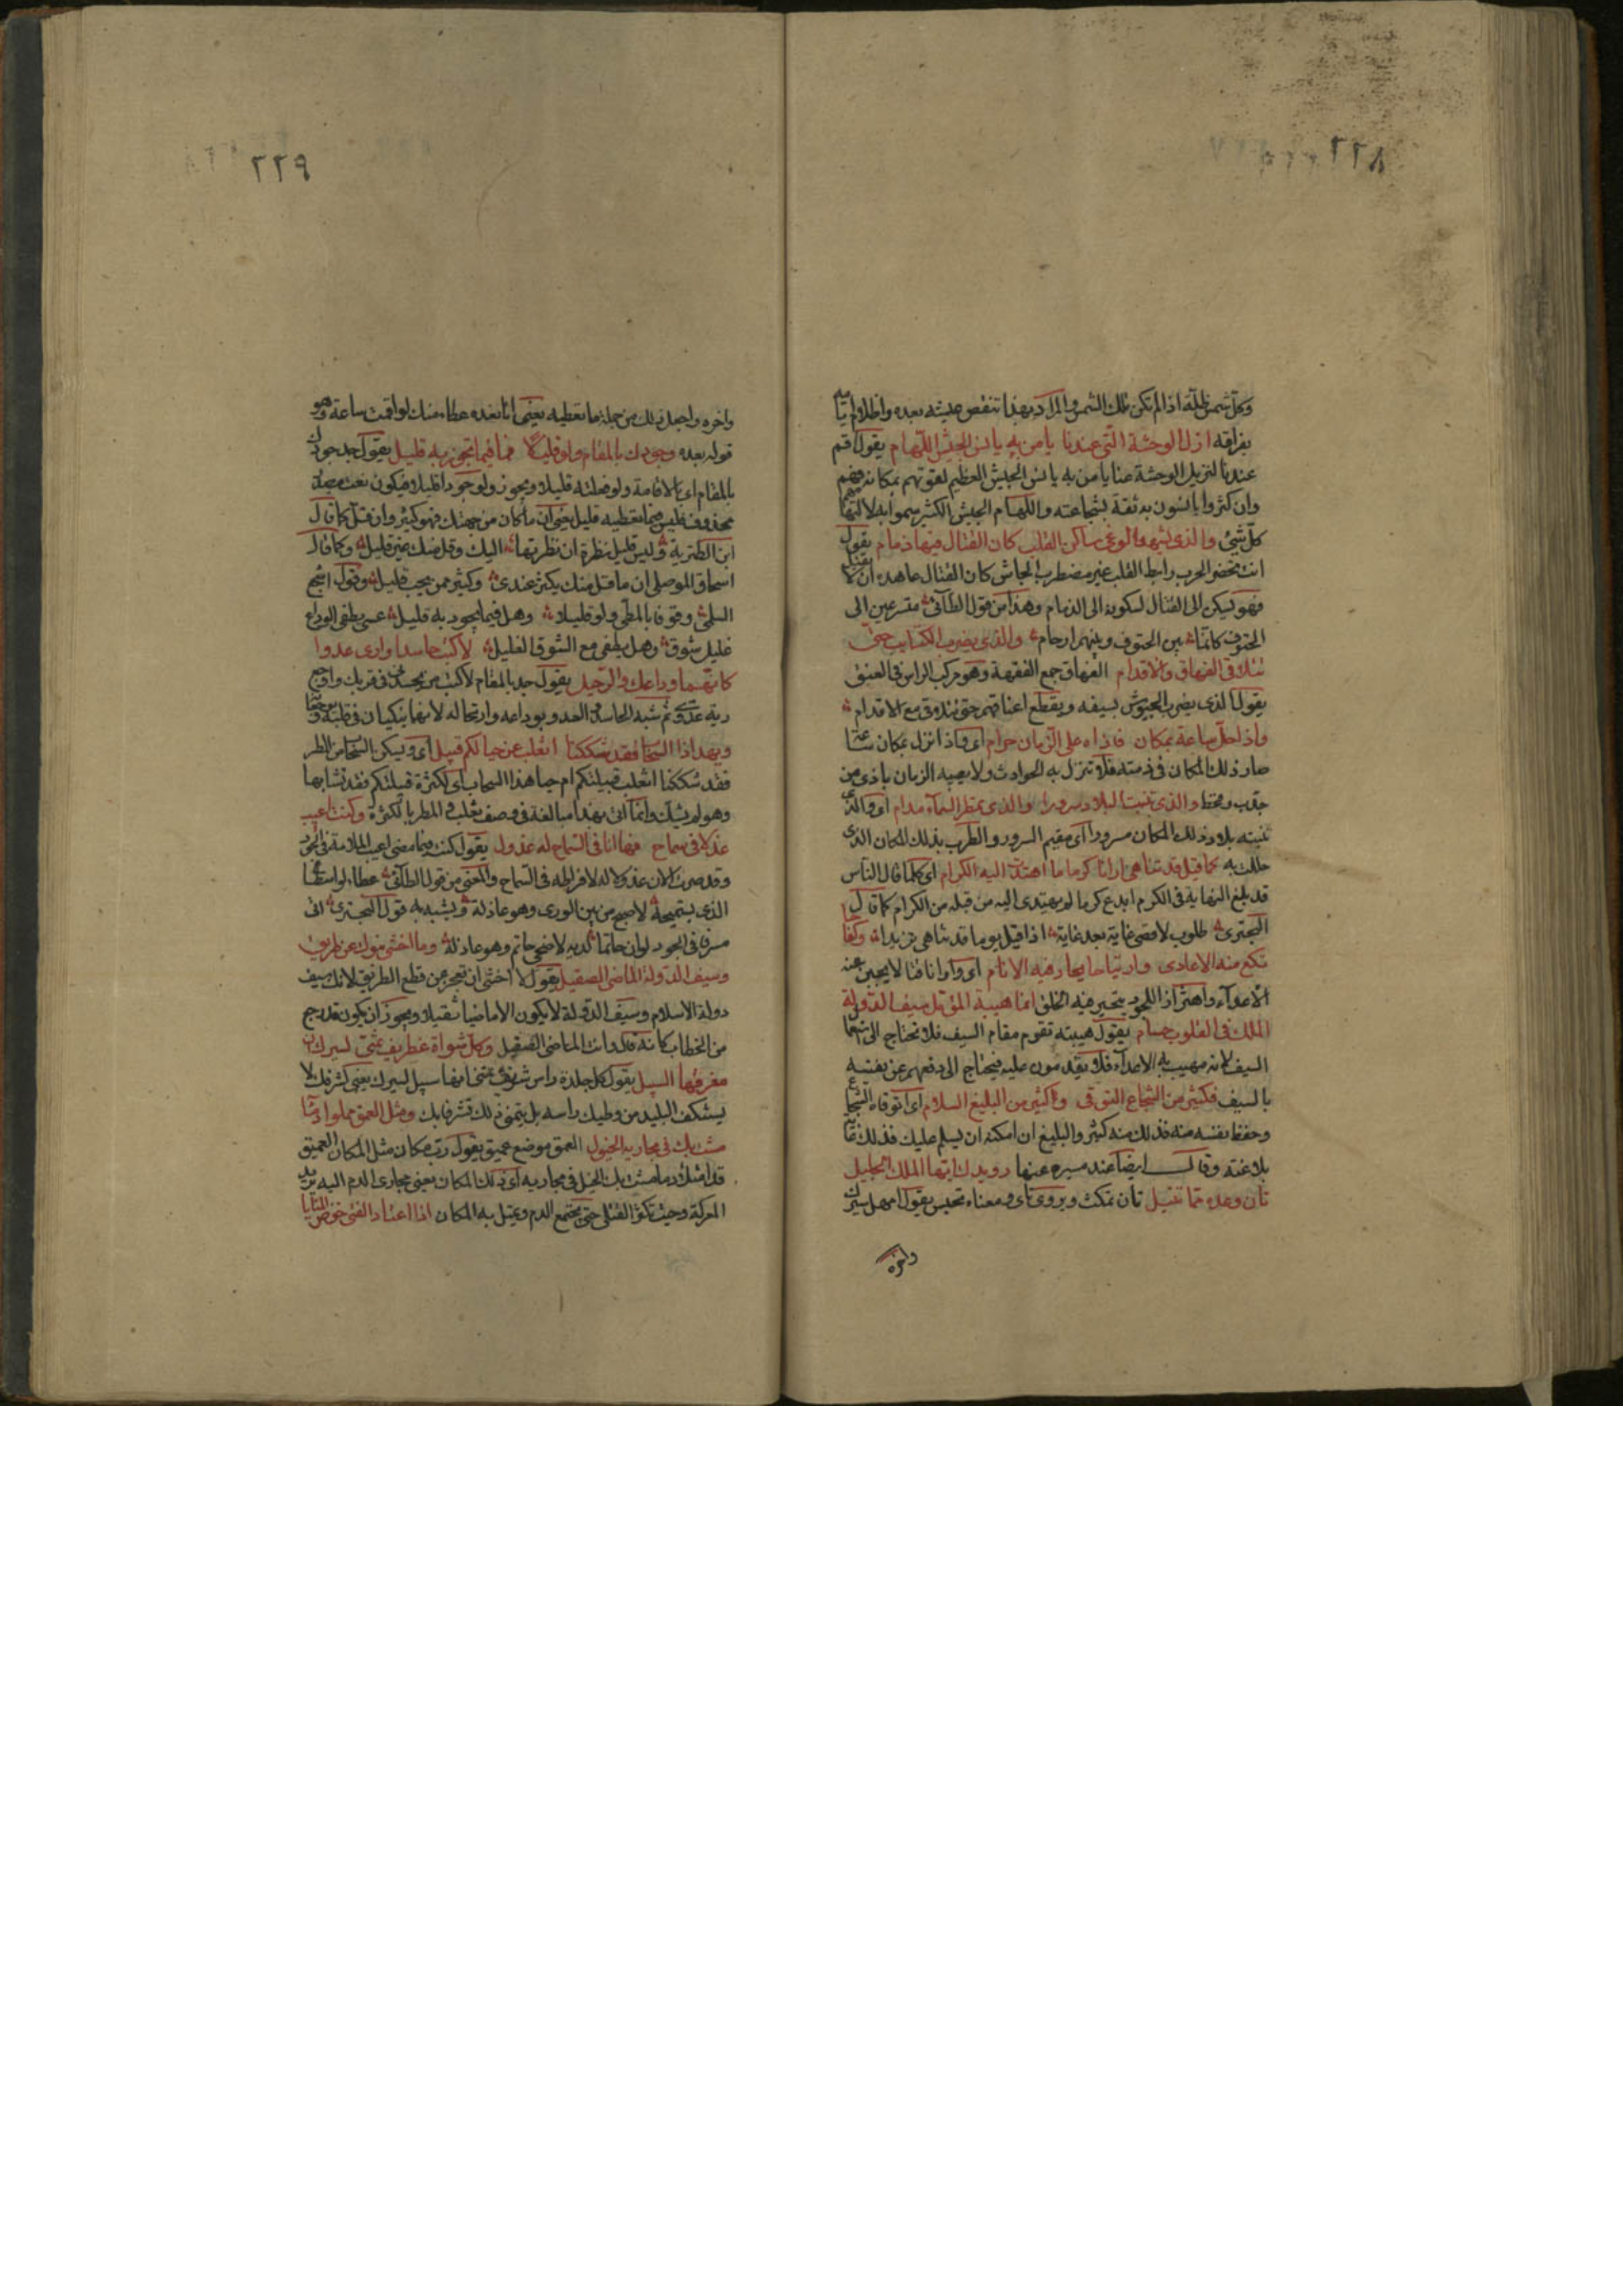 ٢٢٨
وكل شمس ظلمة اذا لم تكن تلك الشمس والمراد بهذا تنغص عيشه بعده واظلام ايامه
بفراقه ازل الوحشة التي عندنا يا من به يانس الجيش اللهام يقول اقم
عندنا لتزيل الوحشة عنا يا من به يانس الجيش العظيم لقوتهم بمكانه فيهم
وان كثروا يانسون به ثقة بشجاعته واللهام الجيش الكثير سموا به لالتهامهم
كل شئ والذي يشهد الوغى ساكن القلب كان القتال فيها ذمام يقول
انت تحضر الحرب رابط القلب غير مضطرب الجاش كان القتال عاهده ان لا يقتل
فهو يسكن الى القتال لسكونه الى الذمام وهذا من قول الطآئي متسرعين الى
الحتوف كانما بين الحتوف وبينهم ارحام والذي يضرب الكتايب حتى
تتلاقى الفهاق والاقدام الفهاق جمع الفهقة وهو مركب الراس في العنق
يقول الذي يضرب الجيوش بسيفه ويقطع اعناقهم حتى تتلاقى مع الاقدام
واذا حل ساعة بمكان فاذاه على الزمان حرام اى واذا نزل بمكان ساعة
صار ذلك المكان في ذمته فلا تنزل به الحوادث ولا يصيبه الزمان باذى من
جدب وقحط والذي تنبت البلاد سرورا والذي تمطر السمآء مدام اى والذي
تنبته بلاد ذلك المكان سرورا اى مقيم السرور والطرب بذلك المكان الذي
حللت به كلما قيل قد تناهى ارانا كرما ما اهتدت اليه الكرام اى كلما قال الناس
قد بلغ النهاية في الكرم ابدع كرما لم يهتدى اليه من قبله من الكرام كما قال
البحتري طلوب لاقصى غاية بعد غاية اذا قيل يوما قد تناهى تزيدا وكفاحا
تكع منه الاعادى وارتياحا يحار فيه الانام اى وارانا قتالا يجبن عنه
الاعدآء واهتزازا للجود يتحير فيه الخلق انما هيبة المؤمل سيف الدولة
الملك في القلوب حسام يقول هيبته تقوم مقام السيف فلا تحتاج الى استعمال
السيف لانه مهيب به الاعدآء فلا يقدمون عليه فيحتاج الى دفعهم عن نفسه
بالسيف فكثير من الشجاع التوقى وكثير من البليغ السلام اى اتوقاه الشجاع
وحفظ نفسه منه فذلك منه كثير والبليغ ان امكنه ان يسلم عليك فذلك غاية
بلاغته وقال ايضا عند مسيره عنها رويدك ايها الملك الجليل
تان وعده مما تنيل تان تمكث ويروى تاى ومعناه تحبس يقول امهل سيرك
واخره
٢٢٩
واخره واجعل ذلك من جملة ما تعطيه يعني انا نعده عطاء منك لو اقمت ساعة وهو
قوله بعده وجودك بالمقام ولو قليلا فما فيما تجود به قليل يقول جد جودك
بالمقام اى بالاقامة ولو فعلته قليلا ويجوز ولو جودا قليلا فيكون نعت مصدر
محذوف فليس فيما تعطيه قليل يعني ان ما كان من جهتك فهو كثير وان قل كما قال
ابن الطثرية وليس قليل نظرة ان نظرتها اليك وقل منك غير قليل وكما قال
اسحاق الموصلي ان ما قل منك يكثر عندى وكثير ممن يحب قليل وقول اشجع
السلمي وقوفا بالمطي ولو قليلا وهل فيما يجود به قليل عسى يطفى الوداع
غليل شوق وهل يطفى مع الشوق الغليل لاكبت حاسدا وارى عدوا
كانهما وداعك والرحيل يقول جد بالمقام لاكبت من يحسدنى في قربك واوجع
رية عدوي ثم شبه الحاسد والعدو بوداعه وارتحاله لانهما ينكيان في قلبه وتوجعا
ويهدا ذا السحاب فقد شككنا اتغلب عن حيا لكم قبيل اى ويسكن السحاب من المطر
فقد شككنا اتغلب قبيلتكم ام حيا هذا السحاب اى لكثرة قبيلتكم فقد تشابها
وهو لم يشك وانما اتى بهذا مبالغة في وصف تغلب والمطر بالكثرة وكنت اعيب
عذلا في سماح فها انا في السماح له عذول يقول كنت فيما مضى اعيب الملامة في الجود
وقد صرت الان عذولا له لافراطه في السماح والمعنى من قول الطآئي عطاء لو اسطاع
الذي يستميحه لاصبح من بين الورى وهو عاذله ويشبه به قول البحتري الى
مسرف في الجود لو ان حاتما لديه لاضحى حاتم وهو عاذله وما اخشى نبوك عن طريق
وسيف الدولة الماضى الصقيل يقول لا اخشى ان تعجز عن قطع الطريق لانك سيف
دولة الاسلام وسيف الدولة لا يكون الا ماضيا ثقيلا ويجوز ان يكون قد رجع
من الخطاب كانه قال وانت الماضى الصقيل وكل شواة غطريف تمنى لسيرك ان
مفرقها السبيل يقول كل جلدة راس شريف تتمنى انها سبيل لسيرك يعني لشرفك لا
يستنكف البليد من وطيك راسه بل يتمنى ذلك تشرفا بك ومثل العمق مملوا دمآ
مشت بك في مجاريه الخيول العمق موضع عميق يقول رب مكان مثل المكان العميق
قد امتلا دما مشت بك الخيل في مجاريه اى ذلك المكان يعني مجارى الدم اليه يريد
المعركة وحيث تكثر القتلى حتى يجتمع الدم ويمتلى به المكان اذا اعتاد الفتى خوض المنايا